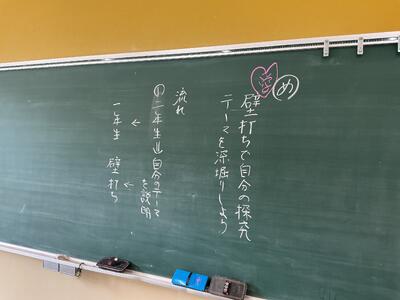 め
壁打ちで自分の探究
テーマを深掘りしよう
流れ
①二年生⇒自分のテーマ
を説明
↓ ↓
一年生 壁打ち